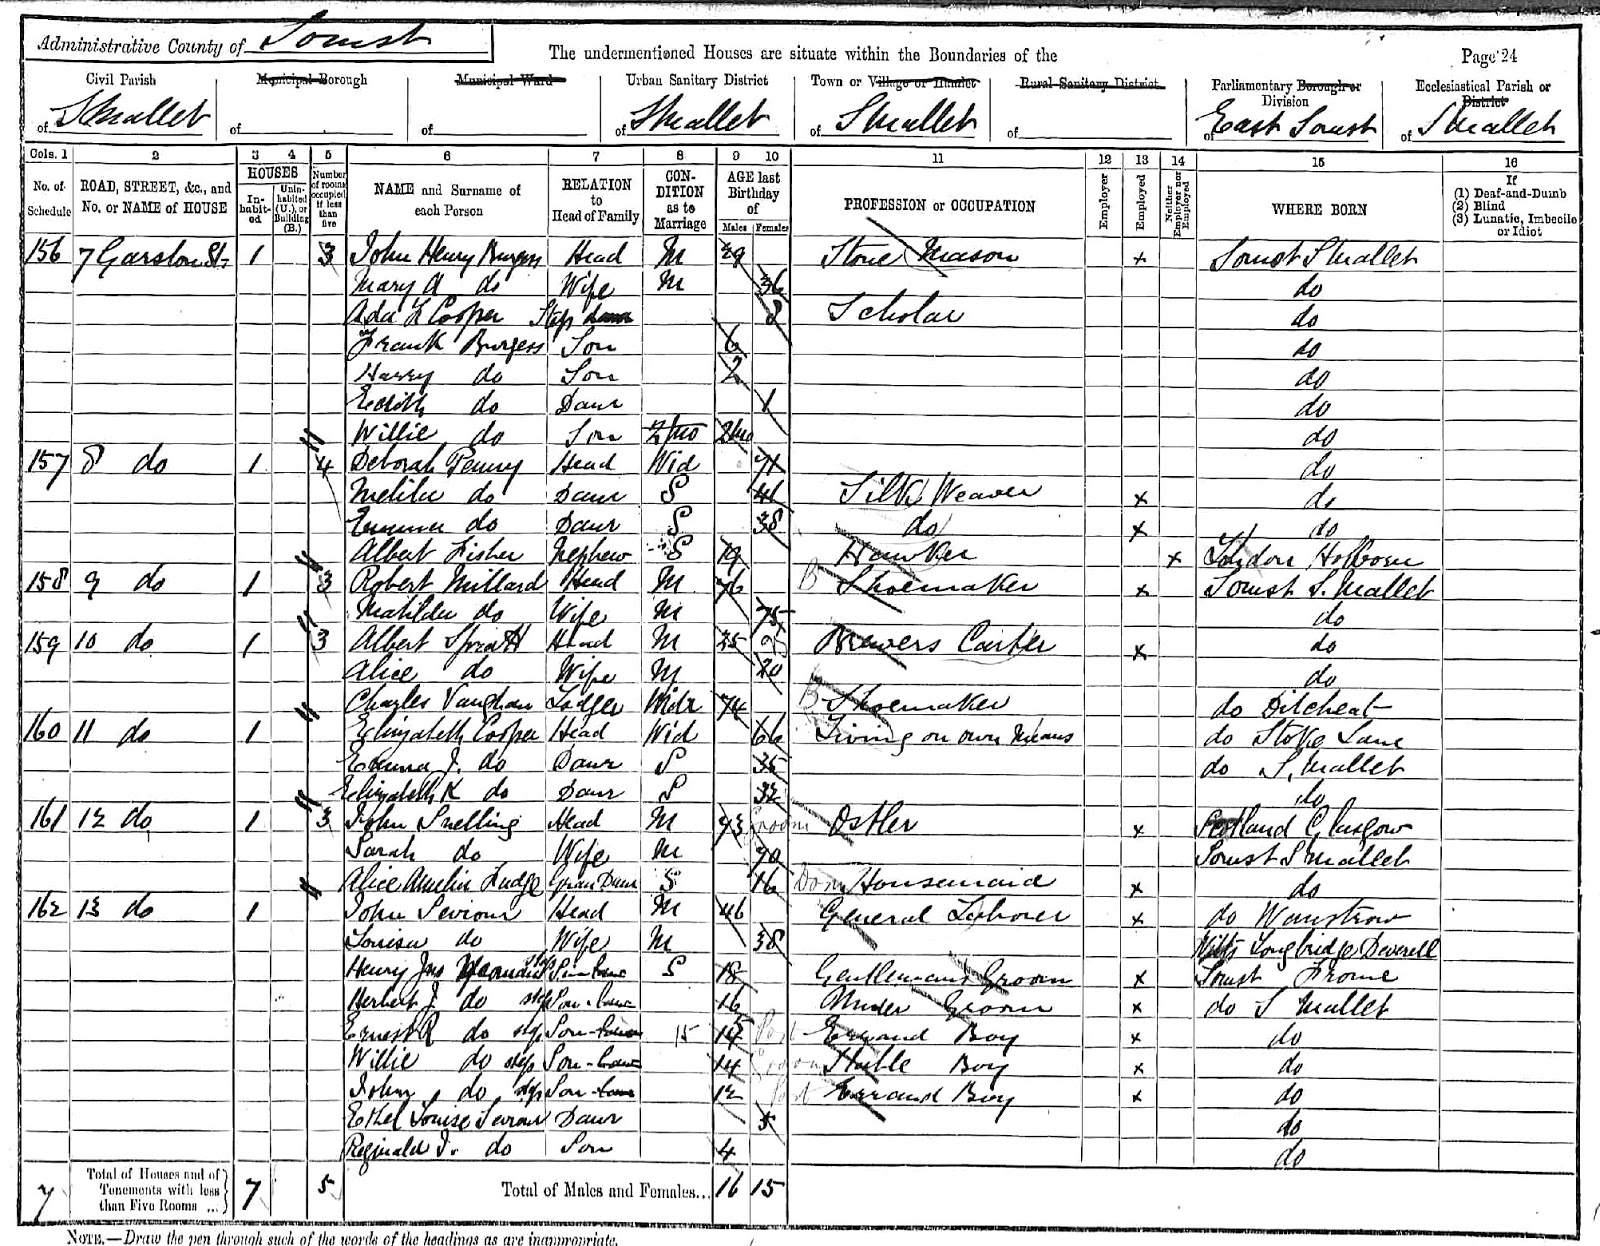 Administrative County of Somst
The undermentioned Houses are situate within the Boundaries of the
Page 24
Civil Parish
of S Mallet
Municipal Borough
of
Municipal Ward
of
Urban Sanitary District
of S Mallet
Town or Village or Hamlet
of S Mallet
Rural Sanitary District
of
Parliamentary Borough or Division
of East Somst
Ecclesiastical Parish or District
of S Mallet
Cols. 1 2 3 4 5 6 7 8 9 10 11 12 13 14 15 16
No. of Schedule
ROAD, STREET, &c., and No. or NAME of HOUSE
HOUSES
In-habit-ed
Unin-habited (U.), or Building (B.)
Number of rooms occupied if less than five
NAME and Surname of each Person
RELATION to Head of Family
CON-DITION as to Marriage
AGE last Birthday of
Males Females
PROFESSION or OCCUPATION
Employer
Employed
Neither Employer nor Employed
WHERE BORN
If
(1) Deaf-and-Dumb
(2) Blind
(3) Lunatic, Imbecile or Idiot
156 7 Garston St 1 3 John Henry Burgess Head M 29 Stone Mason x Somst S Mallet
Mary A do Wife M 36 do
Ada L Cooper Step daur 8 Scholar do
Frank Burgess Son 6 do
Harry do Son 2 do
Edith do Daur 1 do
Willie do Son 2/mo 2mo do
157 8 do 1 4 Deborah Penny Head Wid 71 do
do Daur S 41 Silk Weaver x do
Emma do Daur S 38 do x do
Albert Fisher Nephew S 19 Hawker x London Holborn
158 9 do 1 3 Robert Millard Head M 76 Shoemaker x Somst S. Mallet
Matilda do Wife M 75 do
159 10 do 1 3 Albert Head M 25 Brewers Carter x do
Alice do Wife M 20 do
Charles Vaughan Lodger Widr 74 Shoemaker do Ditcheat
160 11 do 1 Elizabeth Cooper Head Wid 66 Living on own Means do Stoke Lane
Emma J. do Daur S 35 do S. Mallet
Elizabeth K do Daur S 32 do
161 12 do 1 3 John Snelling Head M 73 Groom Ostler x Scotland Glasgow
Sarah do Wife M 70 Somst S Mallet
Alice Amelia Gran Daur S 16 Dom Housemaid x do
162 13 do 1 John Seviour Head M 46 General Laborer x do Wanstrow
Louisa do Wife M 38 Wilts Longbridge Deverell
Henry Jno step Son S 18 Gentlemans Groom x Somst Frome
Herbert J. do step Son-law 16 Under Groom x do S Mallet
Ernest R do step Son-law 15 15 Errand Boy x do
Willie do step Son-law 14 Groom Stable Boy x do
John do step Son-law 12 Errand Boy x do
Ethel Louise Seviour Daur 5 do
Reginald J. do Son 4 do
7 Total of Houses and of Tenements with less than Five Rooms ... 7 5 Total of Males and Females... 16 15
NOTE.—Draw the pen through such of the words of the headings as are inappropriate.